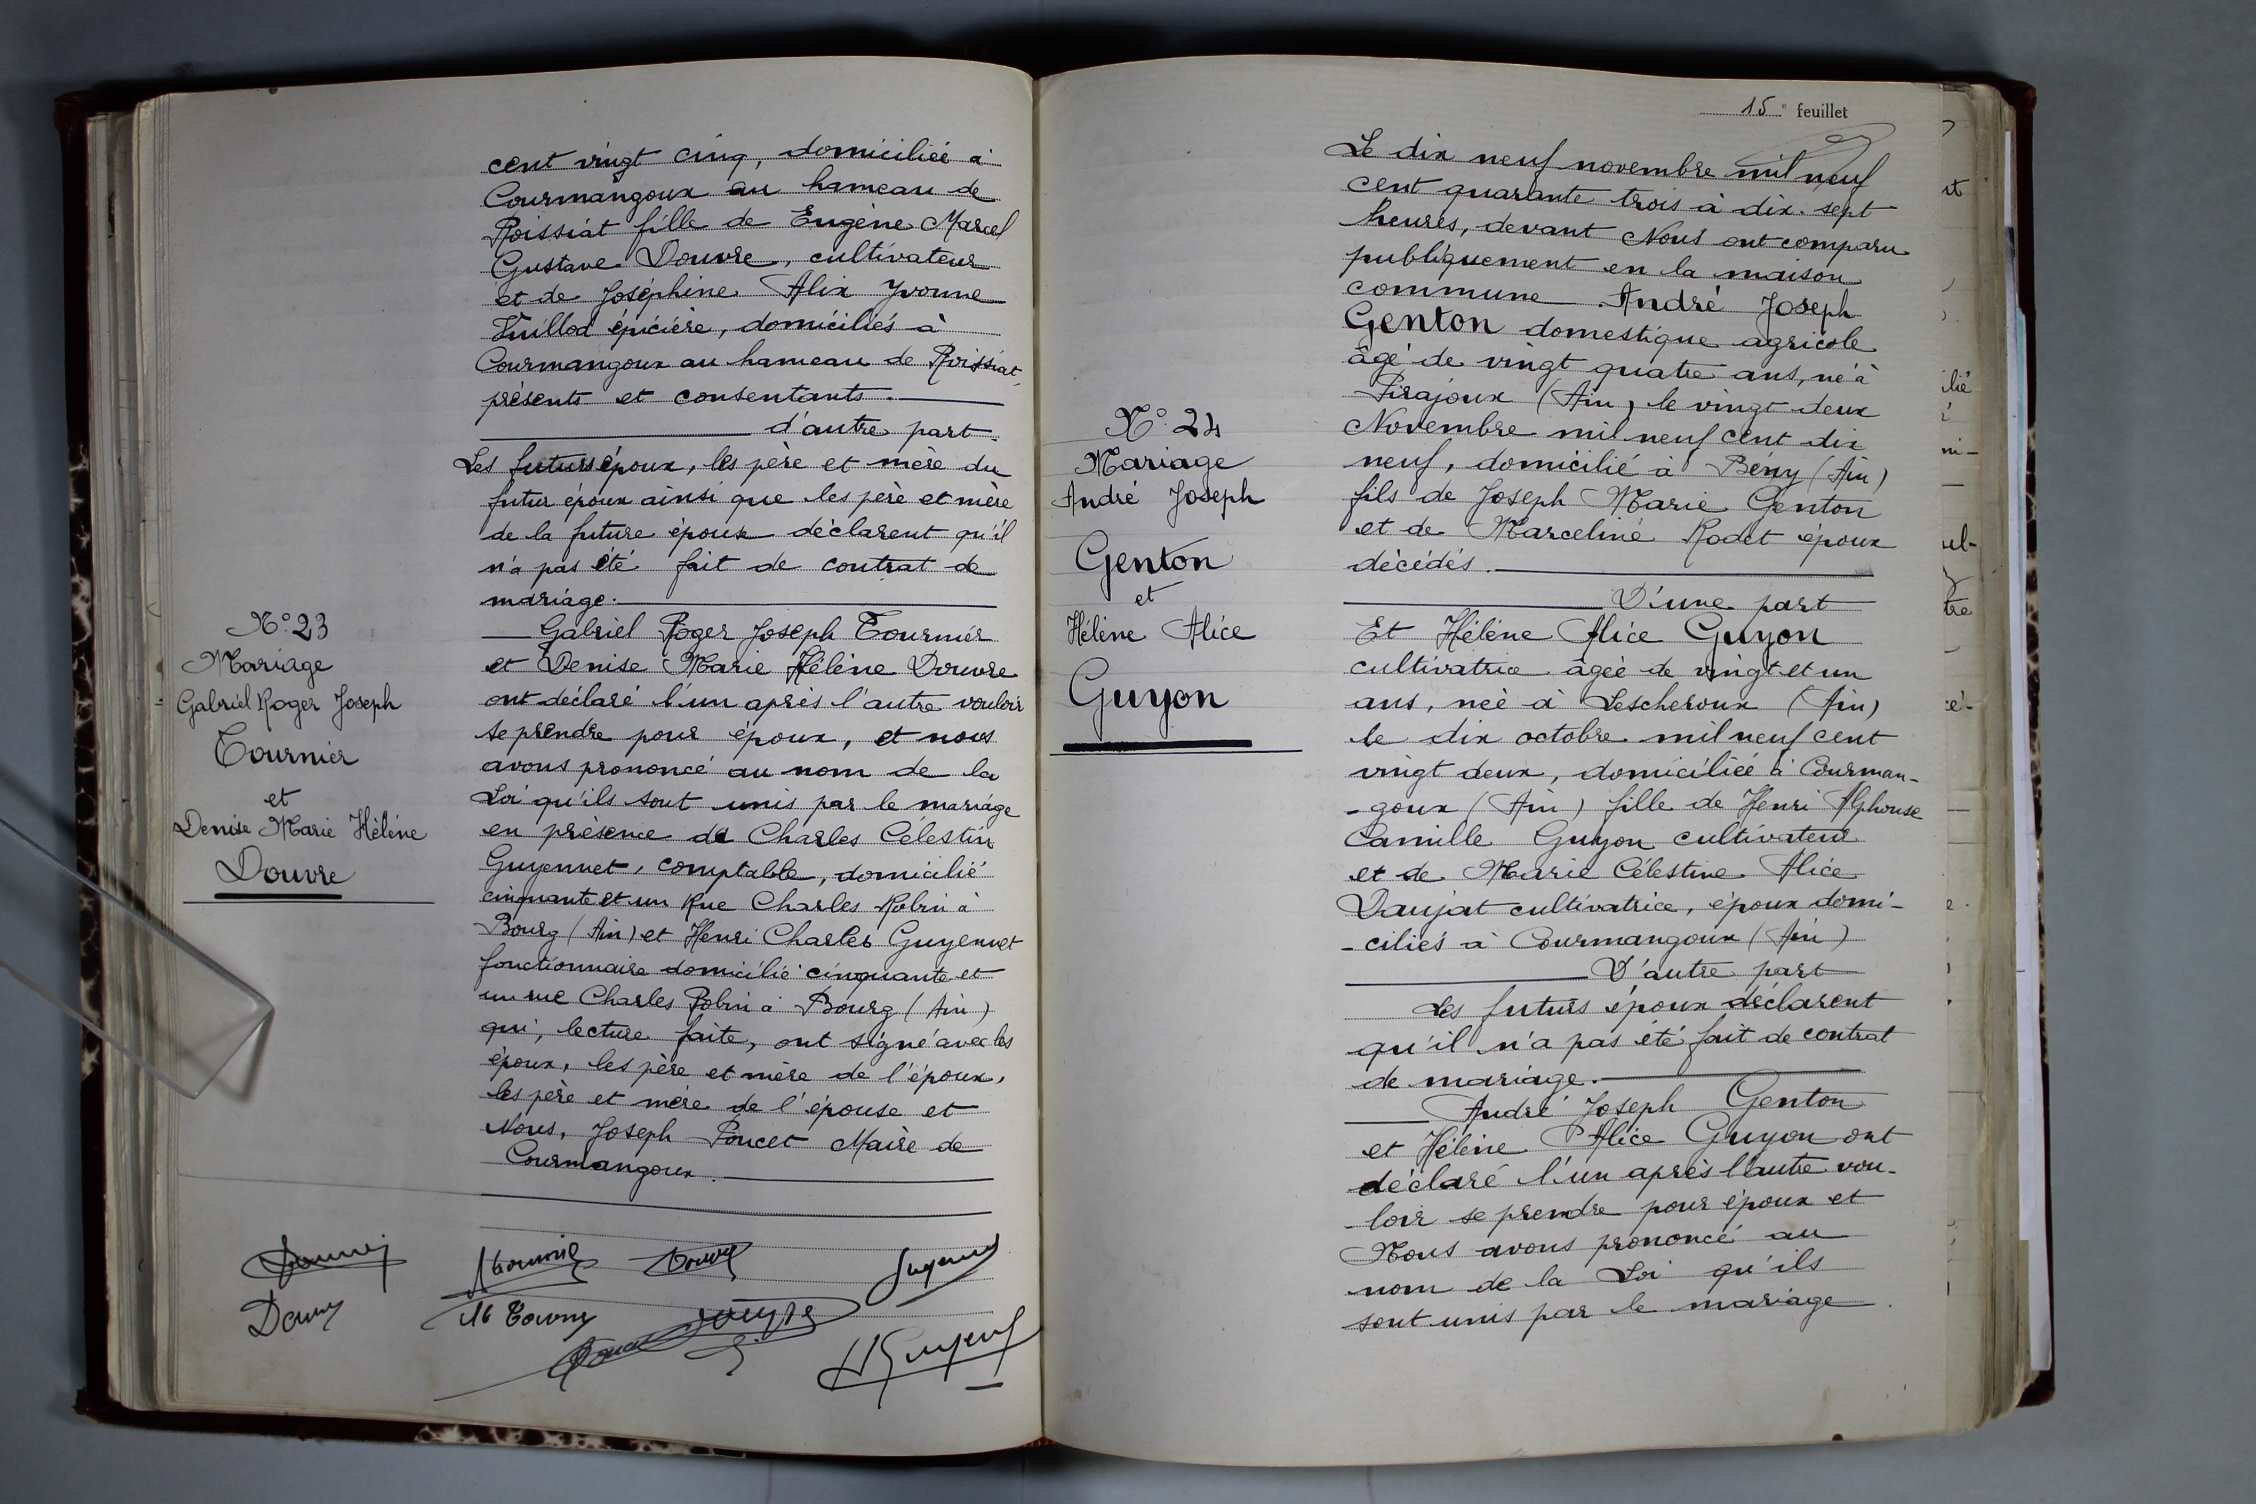 cent vingt cinq, domiciliée à
Courmangoux au hameau de
Roissiat fille de Eugène Marcel
Gustave Douvre, cultivateur
et de Joséphine Alix Yvonne
Vuillod épicière, domiciliés à
Courmangoux au hameau de Roissiat,
présents et consentants.
d'autre part.
Les futurs époux, les père et mère du
futur époux ainsi que les père et mère
de la future époux déclarent qu'il
n'a pas été fait de contrat de
mariage.
N° 23
Mariage
Gabriel Roger Joseph
Tournier
et
Denise Marie Hélène
Douvre
Gabriel Roger Joseph Tournier
et Denise Marie Hélène Douvre
ont déclaré l'un après l'autre vouloir
se prendre pour époux, et nous
avons prononcé au nom de la
Loi qu'ils sont unis par le mariage
en présence de Charles Célestin
Guyennet, comptable, domicilié
cinquante et un Rue Charles Robin à
Bourg (Ain) et Henri Charles Guyennet
fonctionnaire domicilié cinquante et
un rue Charles Robin à Bourg (Ain)
qui, lecture faite, ont signé avec les
époux, les père et mère de l'époux,
les père et mère de l'épouse et
Nous, Joseph Poncet Maire de
Courmangoux.
15e feuillet
N° 24
Mariage
André Joseph
Genton
et
Hélène Alice
Guyon
Le dix neuf novembre mil neuf
cent quarante trois à dix-sept
heures, devant Nous ont comparu
publiquement en la maison
commune André Joseph
Genton domestique agricole
âgé de vingt quatre ans, né à
Pirajoux (Ain) le vingt deux
Novembre mil neuf cent dix
neuf, domicilié à Bény (Ain)
fils de Joseph Marie Genton
et de Marceline Rodet époux
décédés.
D'une part
Et Hélène Alice Guyon
cultivatrice âgée de vingt et un
ans, née à Lescheroux (Ain)
le dix octobre mil neuf cent
vingt deux, domiciliée à Courman-
-goux (Ain) fille de Henri Alphonse
Camille Guyon cultivateur
et de Marie Célestine Alice
Daujat cultivatrice, époux domi-
-ciliés à Courmangoux (Ain)
D'autre part
Les futurs époux déclarent
qu'il n'a pas été fait de contrat
de mariage.
André Joseph Genton
et Hélène Alice Guyon ont
déclaré l'un après l'autre vou-
-loir se prendre pour époux et
Nous avons prononcé au
nom de la Loi qu'ils
sont unis par le mariage